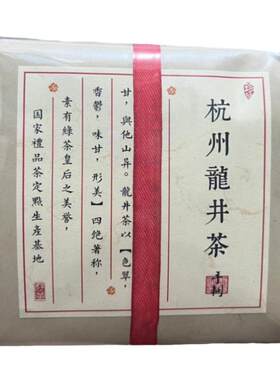 杭州龍井茶
手制
甘，與他山异。龍井茶以【色翠，
香鬱，味甘，形美】四绝著称，
素有綠茶皇后之美譽，
国家禮品茶定點生産基地